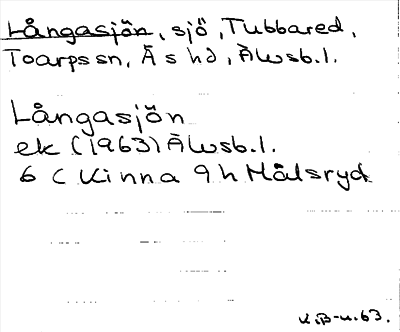 Långasjön, sjö, Tubbared,
Toarps sn, Ås hd, Älvsb.l.
Långasjön
ek (1963) Älvsb.l.
6 C Kinna 9 h Målsryd
K.B-n.63.